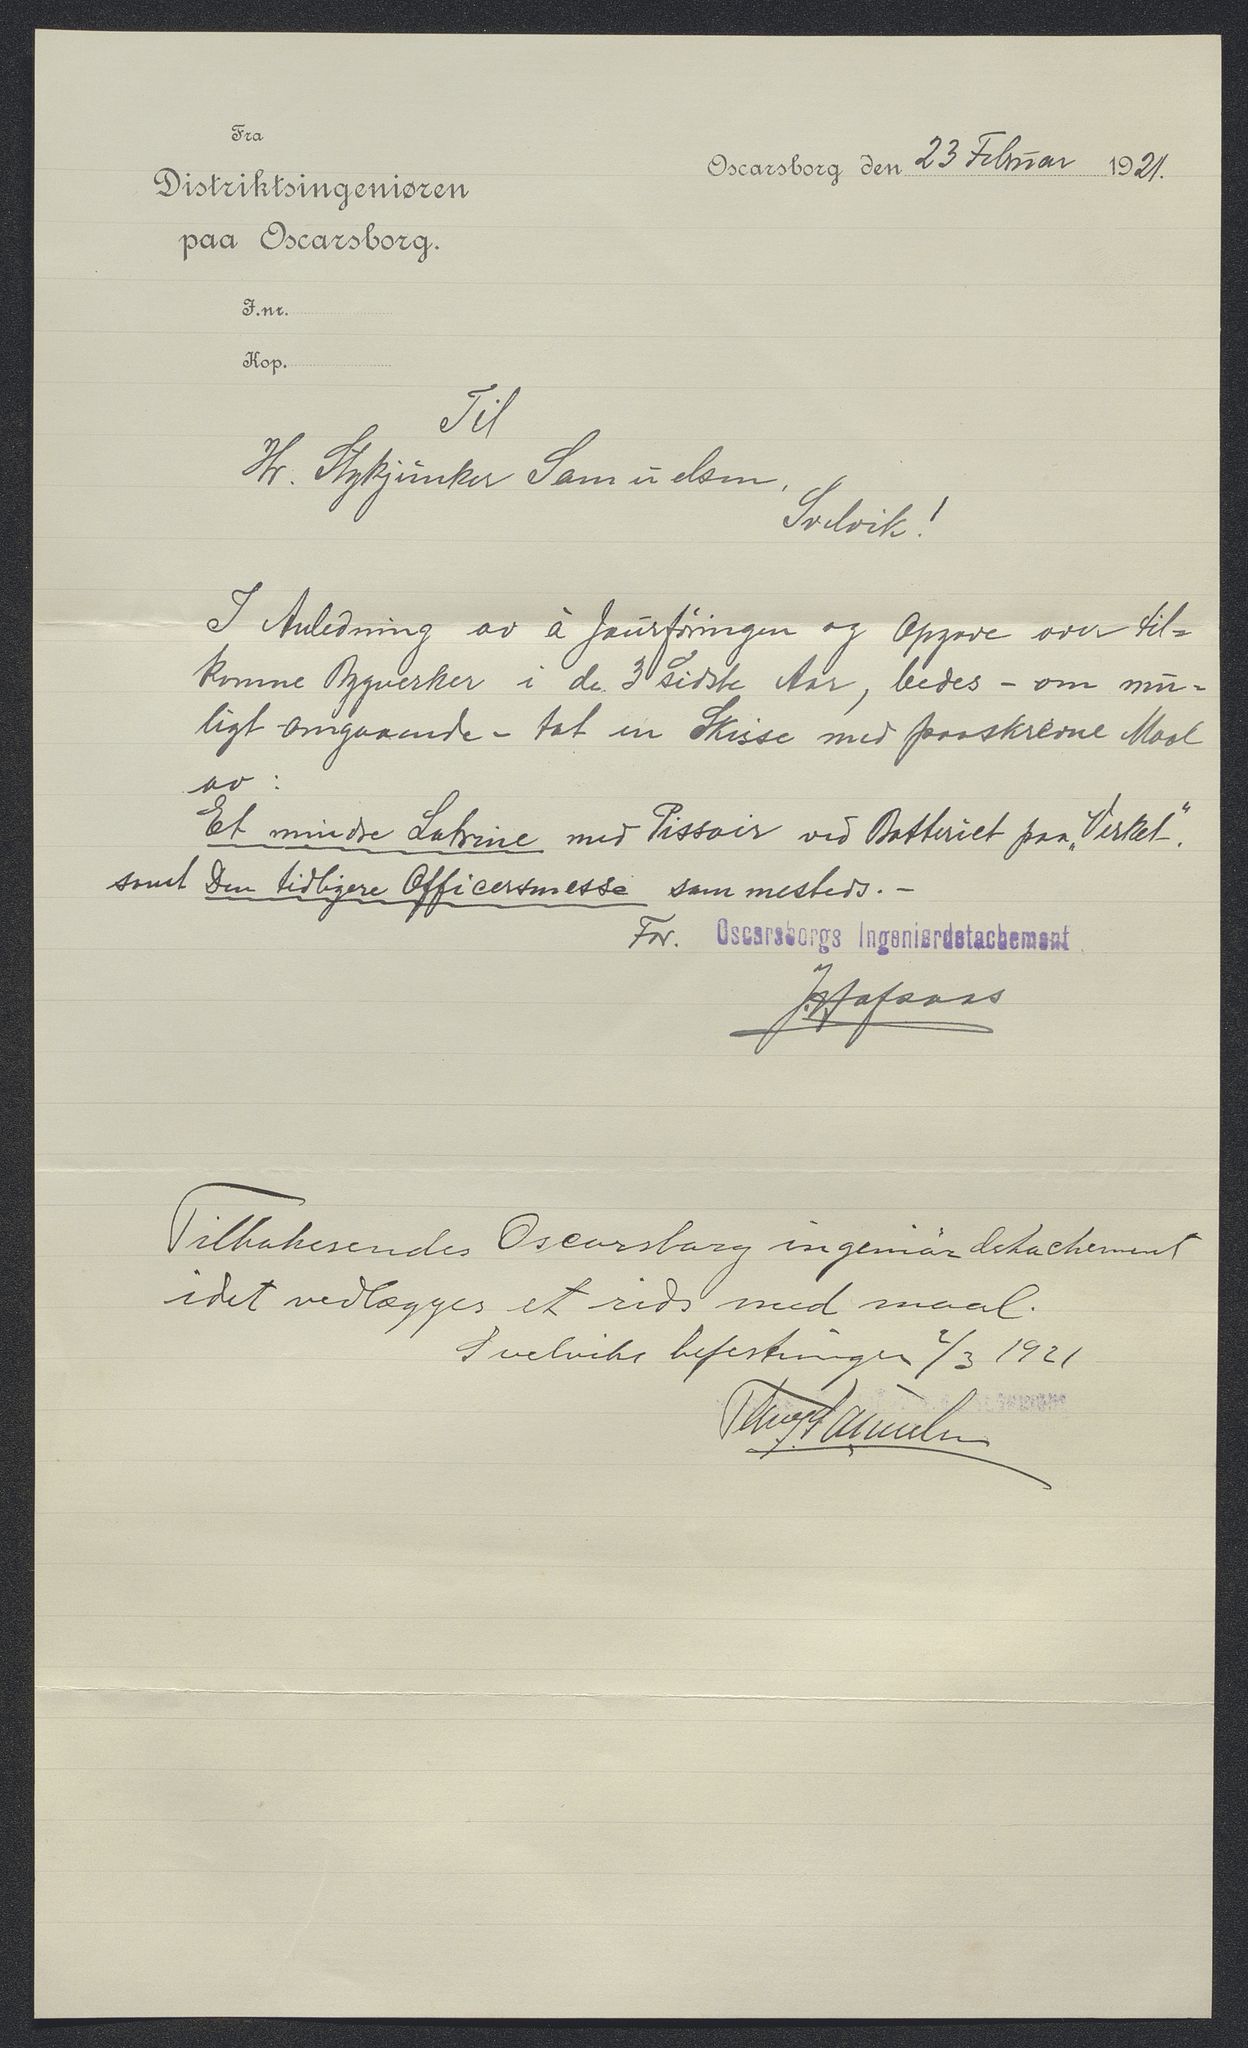 Fra
Distriktsingeniøren
paa Oscarsborg.
Oscarsborg den 23 Februar 1921.
J.nr.
Kop.
Til
Hr. Stykjunker Samuelsen,
Svelvik!
I Anledning av à Jourføringen og Opgave over til=
komne Bygverker i de 3 sidste Aar, bedes - om mu=
ligt omgaaende - tat en Skisse med paaskrevne Maal
av:
Et mindre Latrine med Pissoir ved Batteriet paa „Verket“.
samt Den tidligere Officersmesse sammesteds. -
For. Oscarsborgs Ingeniørdetachement
J. Hafsaas
Tilbakesendes Oscarsborg ingeniørdetachement
idet vedlægges et rids med maal.
Svelviks befestninger 2/3 1921
Samuelsen